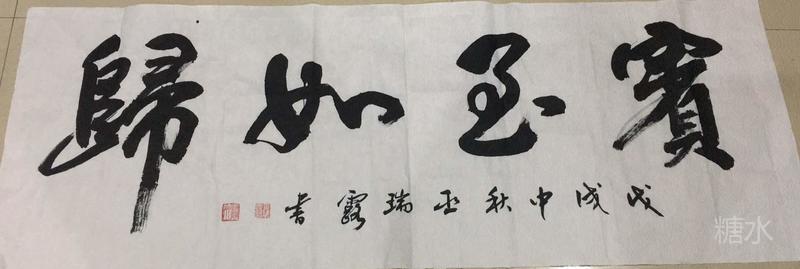 賓至如歸
戊戌中秋丞瑞露書
糖水